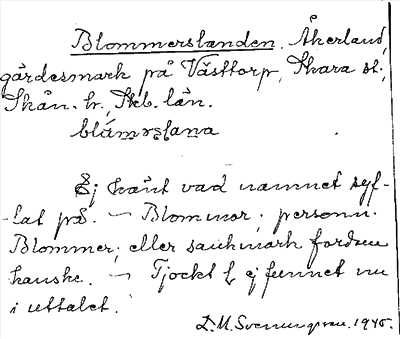 Blommerslanden. Åkerland,
gärdesmark på Västtorp, Skara st.,
Skån. hr, Skb. län.
Ej känt vad namnet syf-
-tat på. – Blommor; personn.
Blommer; eller sankmark fordom
kanske. – Tjockt l ej funnet nu
i uttalet.
D.M. 1945.